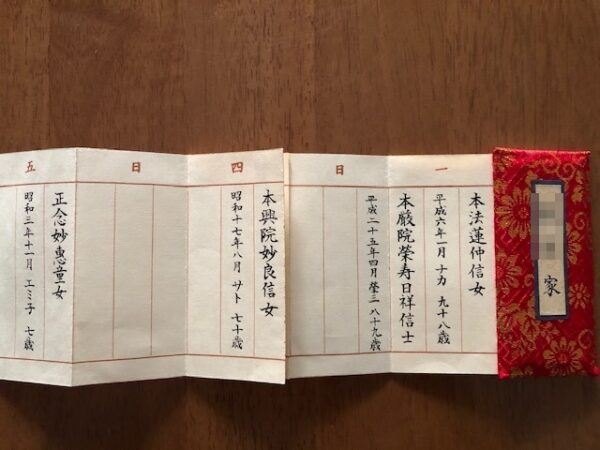 家
一
本法蓮仲信女
平成六年一月 ナカ 九十八歳
本嚴院榮寿日祥信士
日
平成二十五年四月 榮三 八十九歳
四
本興院妙良信女
昭和十七年八月 サト 七十歳
日
五
正念妙惠童女
昭和三年十一月 エミ子 七歳